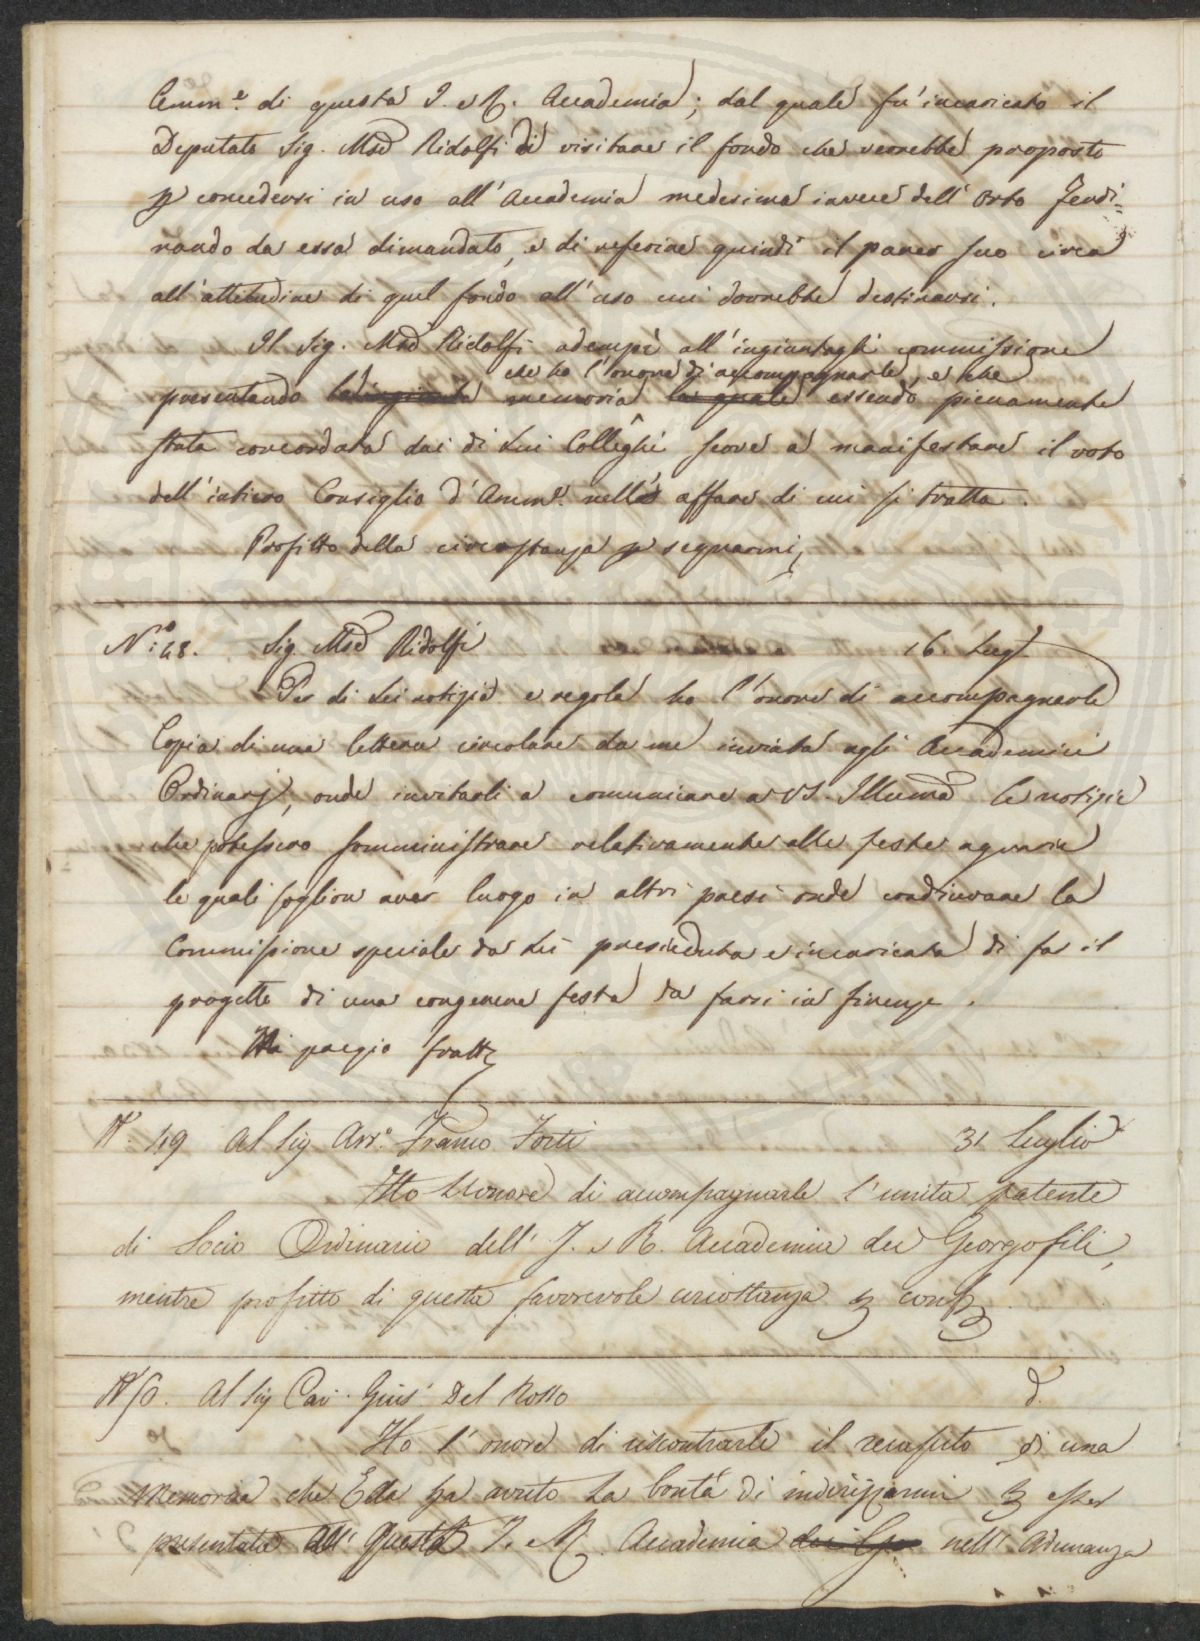 Amm.e di questa I. e R. Accademia; dal quale fu incaricato il
Deputato Sig. March Ridolfi di visitare il fondo che verrebbe proposto
p concedersi in uso all'Accademia medesima invece dell'Orto Ferdi=
nando da essa dimandato, e di referire quindi il parer suo circa
all'attitudine di quel fondo all'uso cui dovrebbe destinarsi.
Il Sig. March Ridolfi adempì all'ingiuntagli commissione
che ho l'onore di accompagnarle, e che
presentando la memoria la quale essendo pienamente
stata concordata dai di Lui Colleghi serve a manifestare il voto
dell'intiero Consiglio d'Amm.e nell' affare di cui si tratta.
Profitto della circostanza p segnarmi
N.o 48. Sig. March Ridolfi 16. Lug.
Per di Lei notizia e regola ho l'onore di accompagnarle
Copia di una lettera circolare da me inviata agli Accademici
Ordinarj, onde invitarli a comunicare a VS. Illuma le notizie
che potessero somministrare relativamente alle feste agrarie
le quali soglion aver luogo in altri paesi onde coadiuvare la
Commissione speciale da Lei presieduta e incaricata di far il
progetto di una congenere festa da farsi in Firenze.
Mi pregio fratt
N. 49 Al Sig Avv.o Franco Forti 31 Luglio
Ho L'onore di accompagnarle l'unita patente
di Socio Ordinario dell'I. e R. Accademia dei Georgofili,
mentre profitto di questa favorevole circostanza p con
N 50. Al Sig Cav. Gius. Del Rosso d.
Ho l'onore di riscontrarle il recapito di una
Memoria che Ella ha avuto La bontà di indirizzarmi p esser
presentata all' questa I. e R. Accademia dei Geo nell'Adunanza